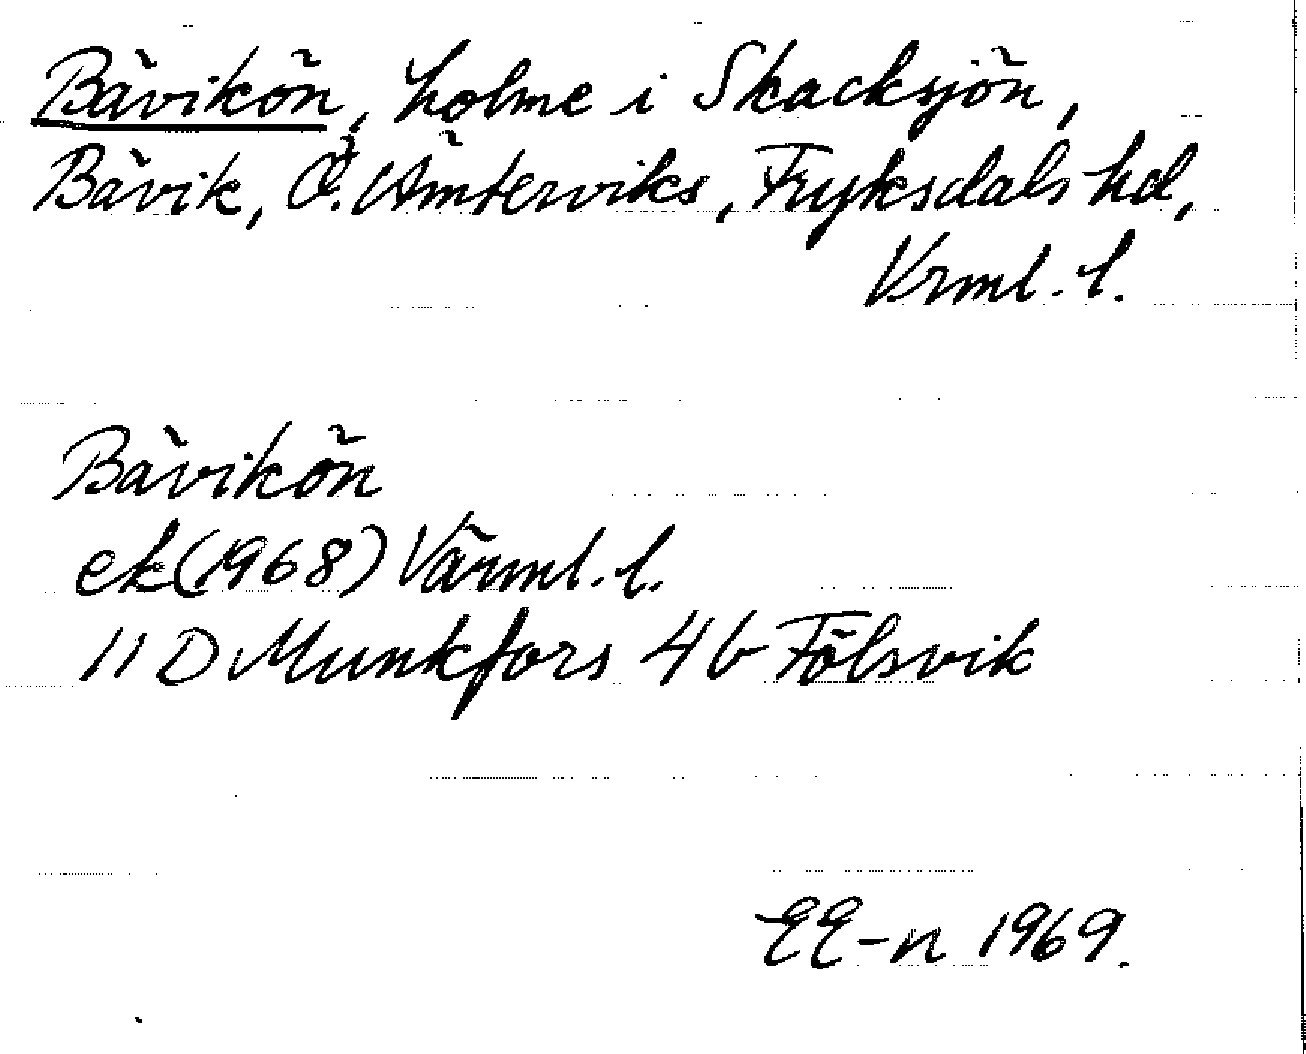 Bävikön, holme i Skacksjön,
Bävik, Ö. Ämterviks, Fryksdals hd,
Vrml. l.
Bävikön
ek (1968) Värml. l.
11 D Munkfors 4 b Fölsvik
EE-n 1969.